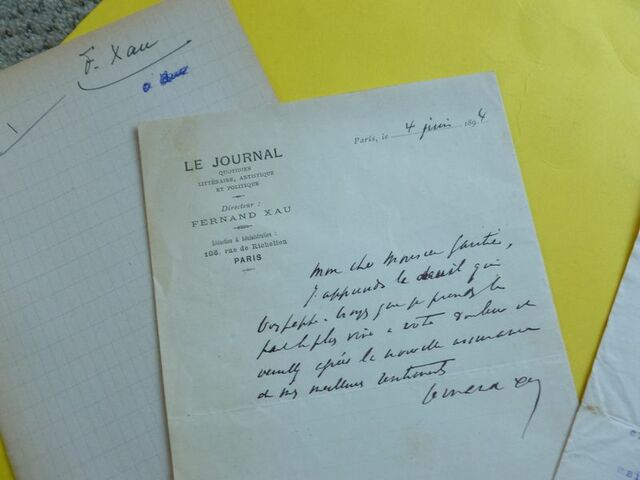 F. Xau
LE JOURNAL
QUOTIDIEN
LITTÉRAIRE, ARTISTIQUE
ET POLITIQUE
Directeur :
FERNAND XAU
Rédaction & Administration :
106, rue de Richelieu
PARIS
Paris, le 4 juin 1894
Mon cher Monsieur Gautier,
J'apprends le deuil qui
vous frappe. Croyez que je prends la
part la plus vive à votre douleur et
veuillez agréer la nouvelle assurance
de mes meilleurs sentiments
Fernand Xau